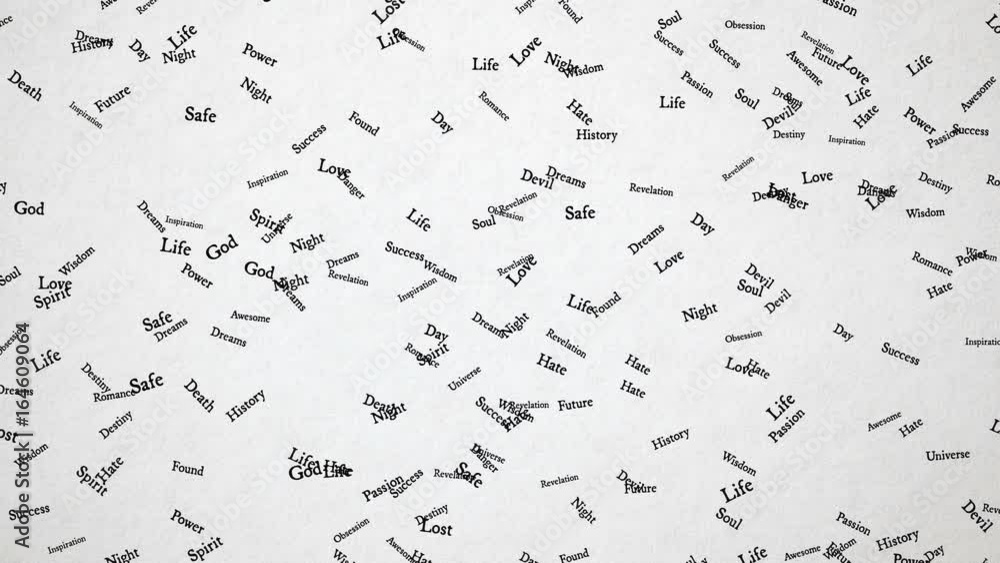 Lost
Passion
Soul
Obsession
Found
Dreams
History
Day
Life
Night
Power
Life
Love
Life
Night
Wisdom
Success
Success
Revelation
Future
Awesome
Love
Life
Death
Future
Inspiration
Night
Safe
Success
Found
Day
Romance
Hate
History
Life
Passion
Soul
Dreams
Devil
Destiny
Life
Hate
Inspiration
Power
Passion
Success
Awesome
Inspiration
Love
Danger
Devil
Dreams
Revelation
Revelation
Love
Danger
Love
Destiny
God
Dreams
Inspiration
Spirit
Universe
Night
Life
God
Life
Soul
Revelation
Obsession
Safe
Day
Wisdom
Soul
Wisdom
Love
Spirit
Power
God
Night
Dreams
Dreams
Revelation
Success
Wisdom
Inspiration
Revelation
Love
Dreams
Love
Devil
Soul
Devil
Romance
Power
Wisdom
Hate
Safe
Dreams
Awesome
Dreams
Day
Spirit
Romance
Dreams
Night
Life
Found
Revelation
Night
Obsession
Day
Success
Inspiration
Life
Destiny
Romance
Safe
Death
History
Destiny
Universe
Hate
Hate
Hate
Love
Hate
Death
Night
Success
Wisdom
Revelation
Hate
Future
Life
Passion
History
Awesome
Hate
Wisdom
Spirit
Hate
Found
Life
God
Hate
Life
Passion
Success
Universe
Danger
Safe
Revelation
Revelation
Devil
Future
Wisdom
Life
Universe
Success
Power
Inspiration
Night
Spirit
Obsession
Destiny
Lost
Awesome
Hate
Night
Found
Soul
Life
Awesome
Passion
Wisdom
History
Power
Day
Devil
Adobe Stock | #164609064